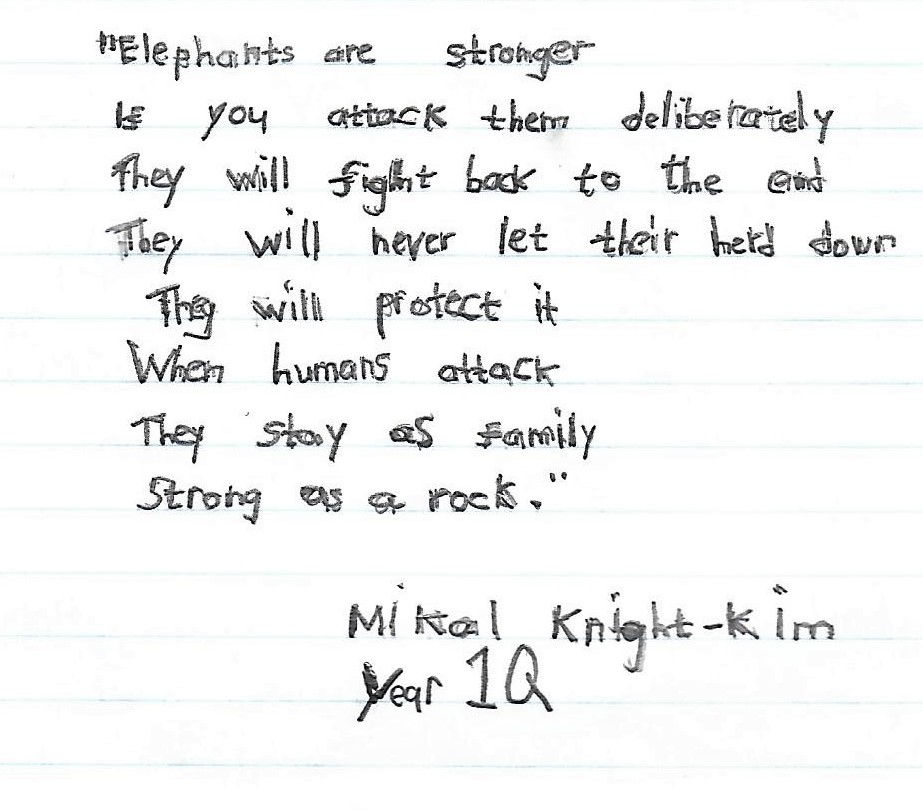 "Elephants are stronger
If you attack them deliberately
They will fight back to the end
They will never let their herd down
They will protect it
When humans attack
They stay as family
Strong as a rock."
Mikal Knight-Kim
Year 1Q